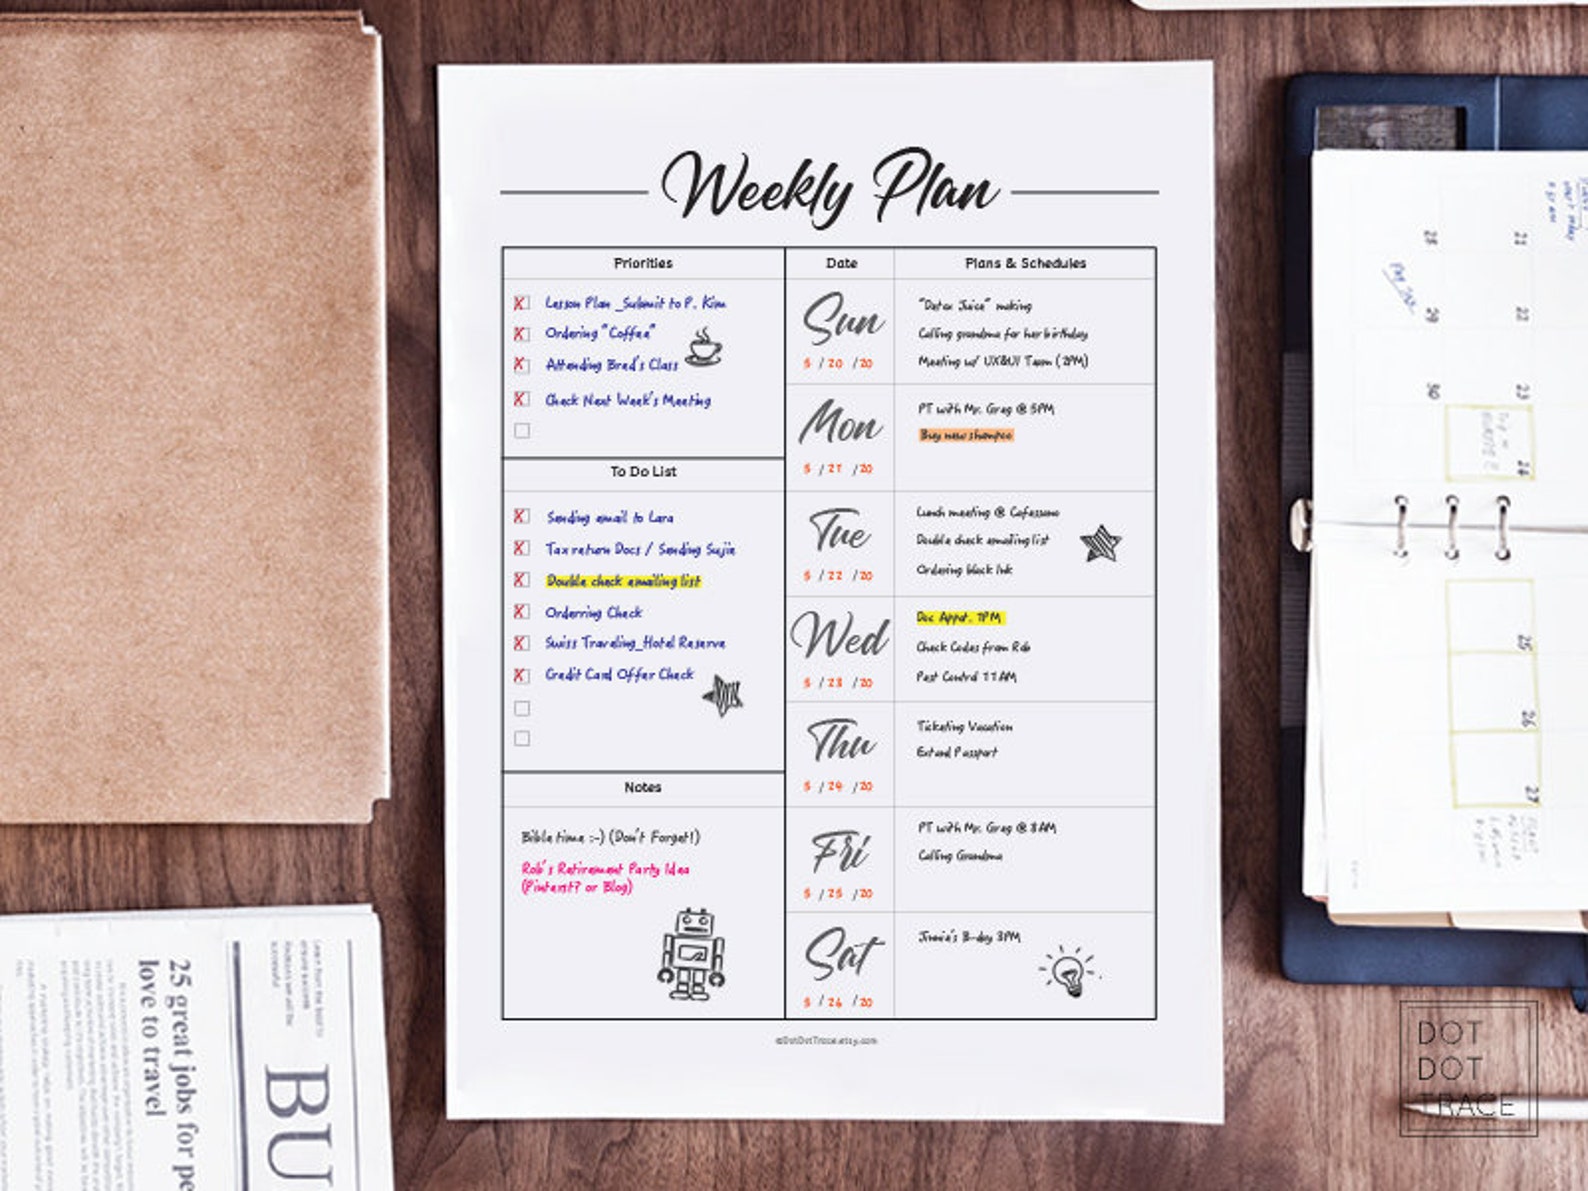 Weekly Plan
Priorities
X Lesson Plan _Submit to P. Kim
X Ordering "Coffee"
X Attending Bred's Class
X Check Next Week's Meeting
To Do List
X Sending email to Lara
X Tax return Docs / Sending Sujie
X Double check emailing list
X Orderring Check
X Swiss Traveling_Hotel Reserve
X Credit Card Offer Check
Notes
Bible time :-) (Don't Forget!)
Rob's Retirement Party Idea
(Pinterst? or Blog)
Date
Plans & Schedules
Sun
5 / 20 / 20
"Detox Juice" making
Calling grandma for her birthday
Meeting w/ UX&UI Team (2PM)
Mon
5 / 21 / 20
PT with Mr. Greg @ 5PM
Buy new shampoo
Tue
5 / 22 / 20
Lunch meeting @ Cafessano
Double check emailing list
Ordering black Ink
Wed
5 / 23 / 20
Doc Appat. 1PM
Check Codes from Rob
Pest Control 11AM
Thu
5 / 24 / 20
Ticketing Vacation
Extend Passport
Fri
5 / 25 / 20
PT with Mr. Greg @ 8AM
Calling Grandma
Sat
5 / 26 / 20
Jinnie's B-day 3PM
©DotDotTrace.etsy.com
25 great jobs for pe
love to travel
BU
28
21
29
22
30
23
24
25
26
27
DOT
DOT
TRACE